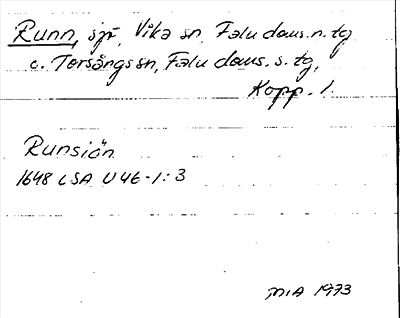 Runn, sjö, Vika sn, Falu doms. n. tg
o. Torsångs sn, Falu doms. s. tg,
Kopp. l.
Runsiön
1648 LSA U 46-1:3
MIA 1973